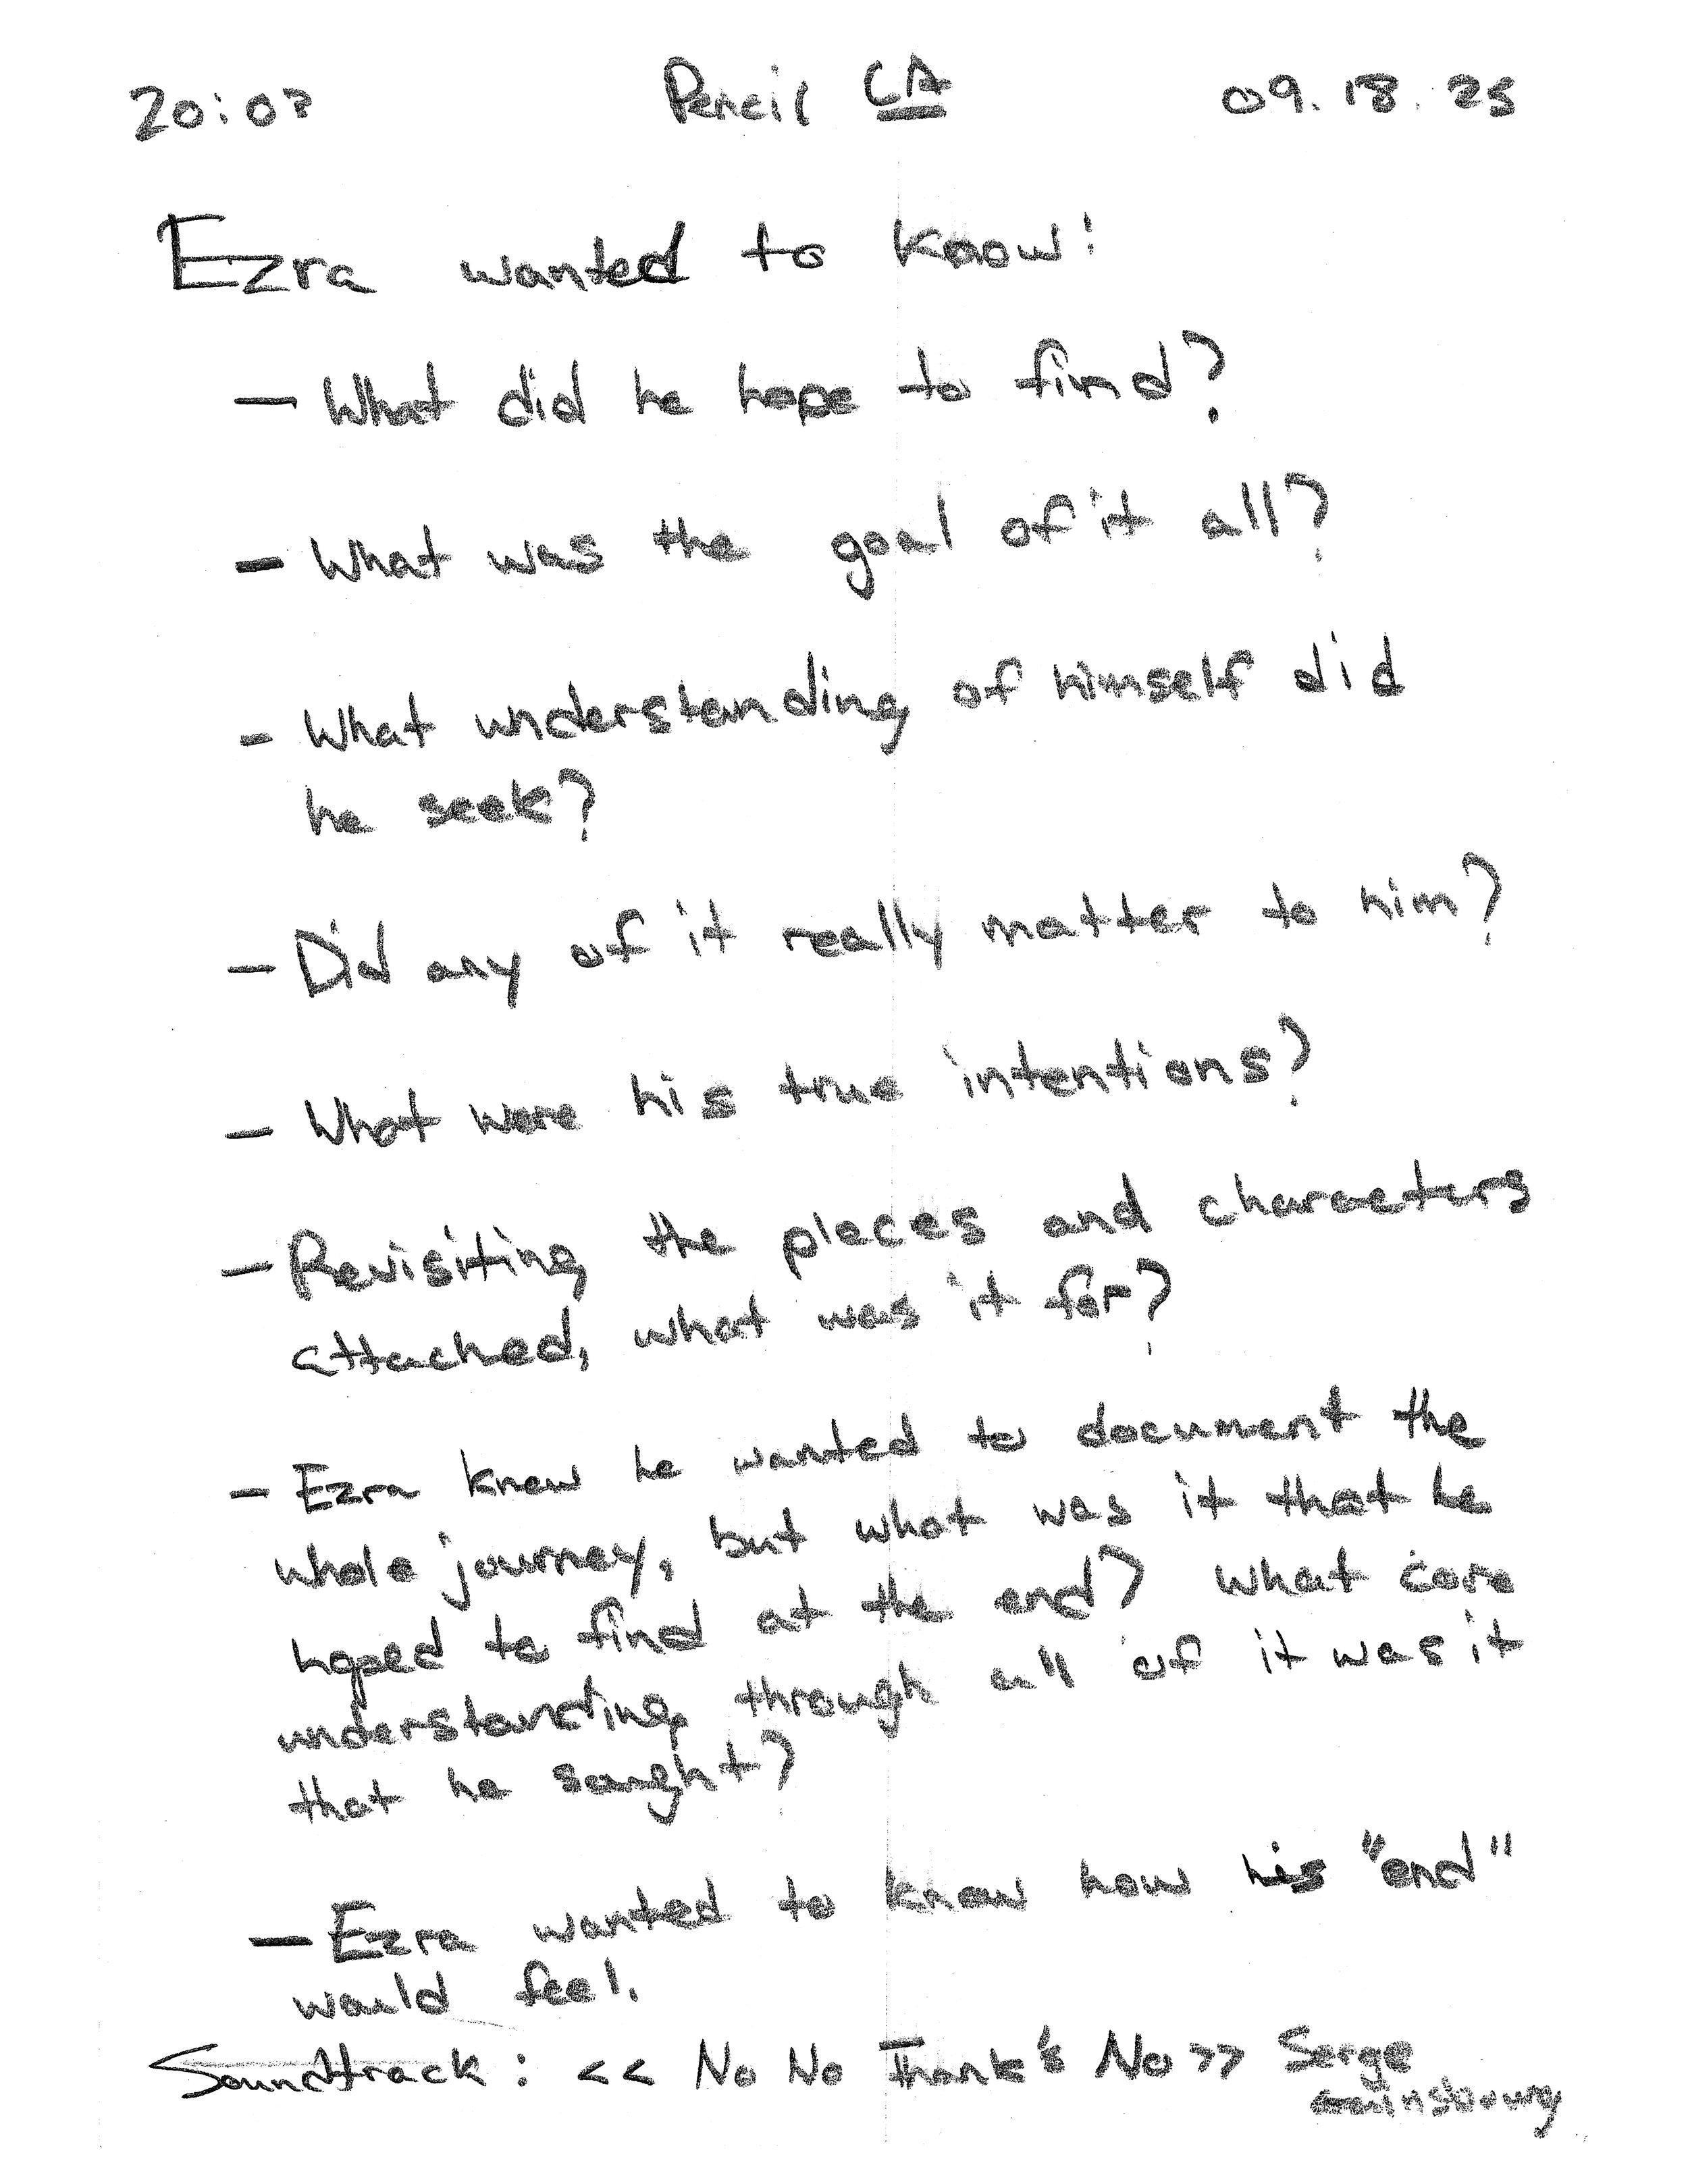 20:07 Pencil CA 09.18.25
Ezra wanted to know:
- What did he hope to find?
- What was the goal of it all?
- What understanding of himself did
he seek?
- Did any of it really matter to him?
- What were his true intentions?
- Revisiting the places and characters
attached, what was it for?
- Ezra knew he wanted to document the
whole journey, but what was it that he
hoped to find at the end? What core
understanding through all of it was it
that he sought?
- Ezra wanted to know how his "end"
would feel.
Soundtrack: << No No Thank's No >> Serge
Gainsbourg